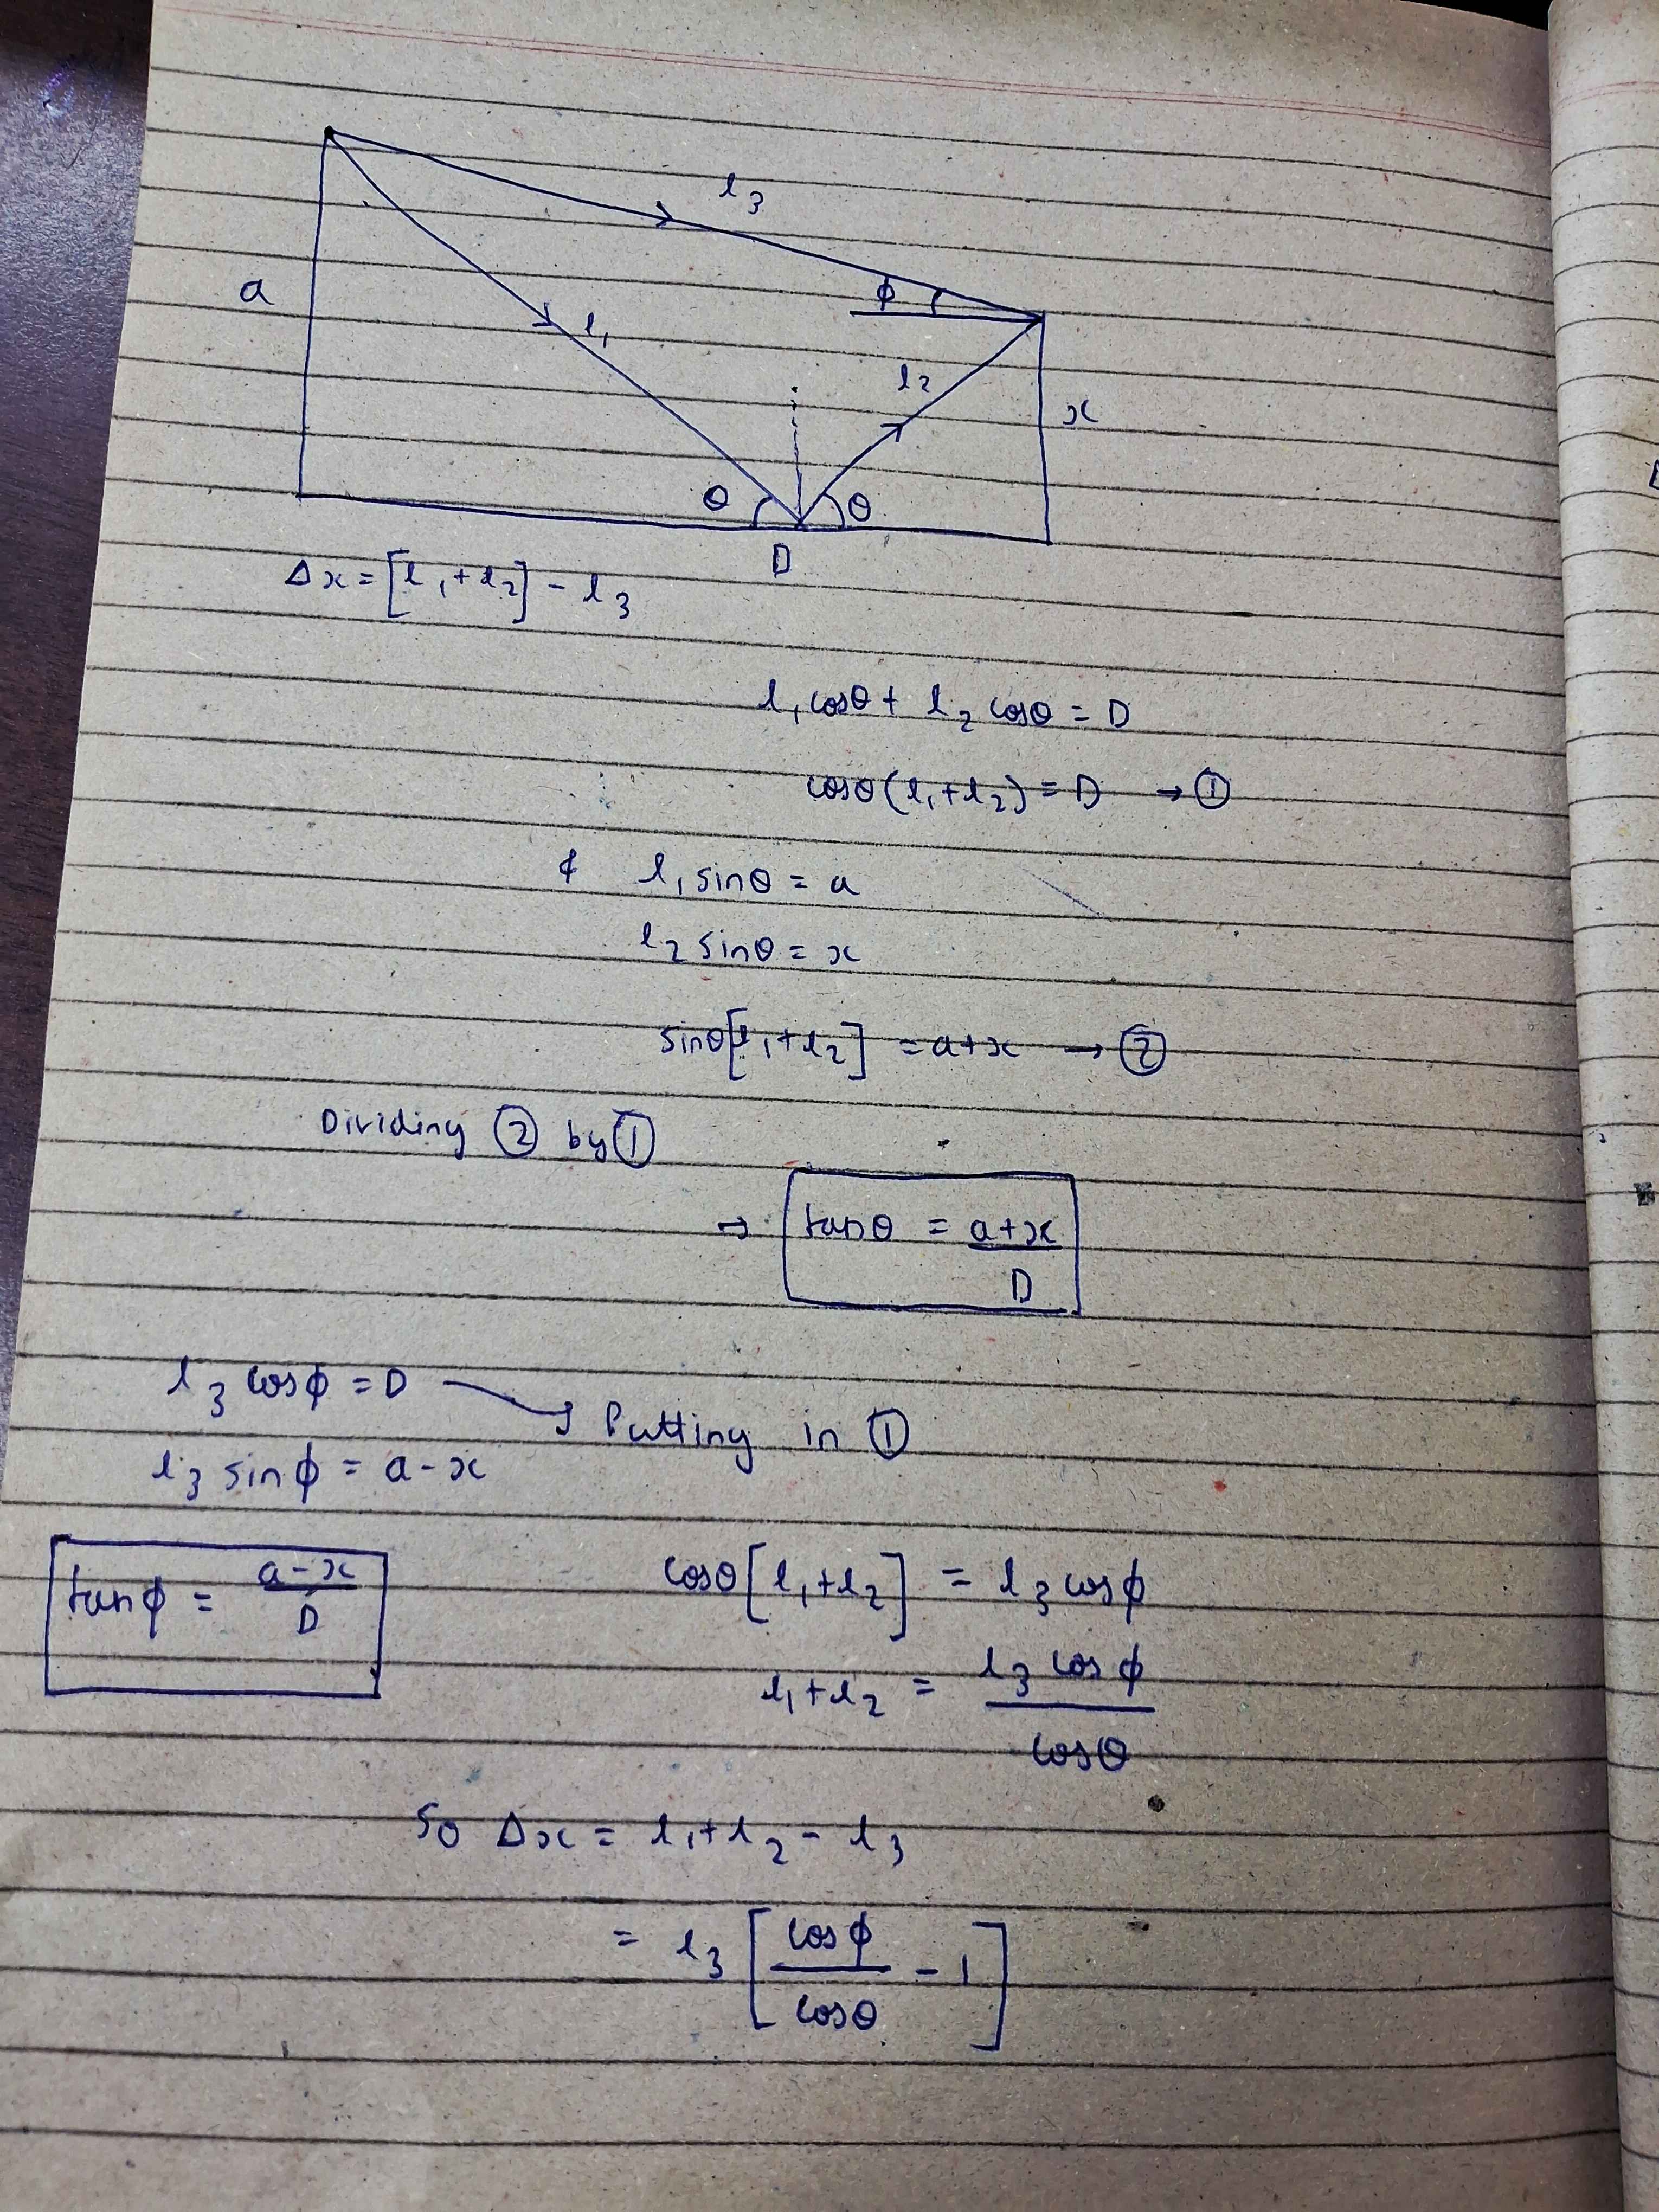 l₃
ϕ
a
l₁
l₂
x
θ
θ
D
Δx = [l₁ + l₂] - l₃
l₁cosθ + l₂ cosθ = D
cosθ(l₁+l₂) = D → ①
& l₁ sinθ = a
l₂ sinθ = x
sinθ[l₁+l₂] = a+x → ②
Dividing ② by ①
⇒ tanθ = (a+x)/D
l₃ cosϕ = D → Putting in ①
l₃ sinϕ = a-x
tanϕ = (a-x)/D
cosθ[l₁+l₂] = l₃ cosϕ
l₁+l₂ = (l₃ cosϕ)/cosθ
So Δx = l₁+l₂ - l₃
= l₃ [cosϕ/cosθ - 1]